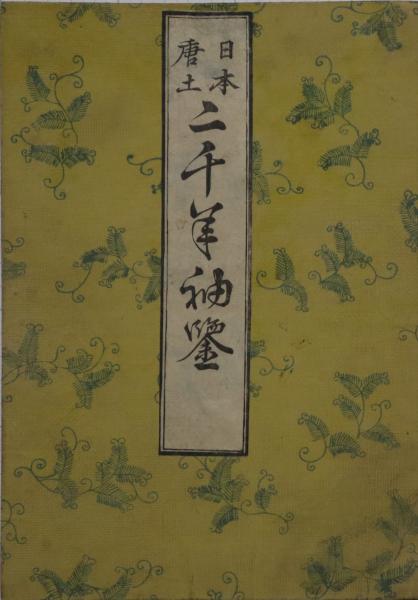 日本
唐土
二千年袖鑒